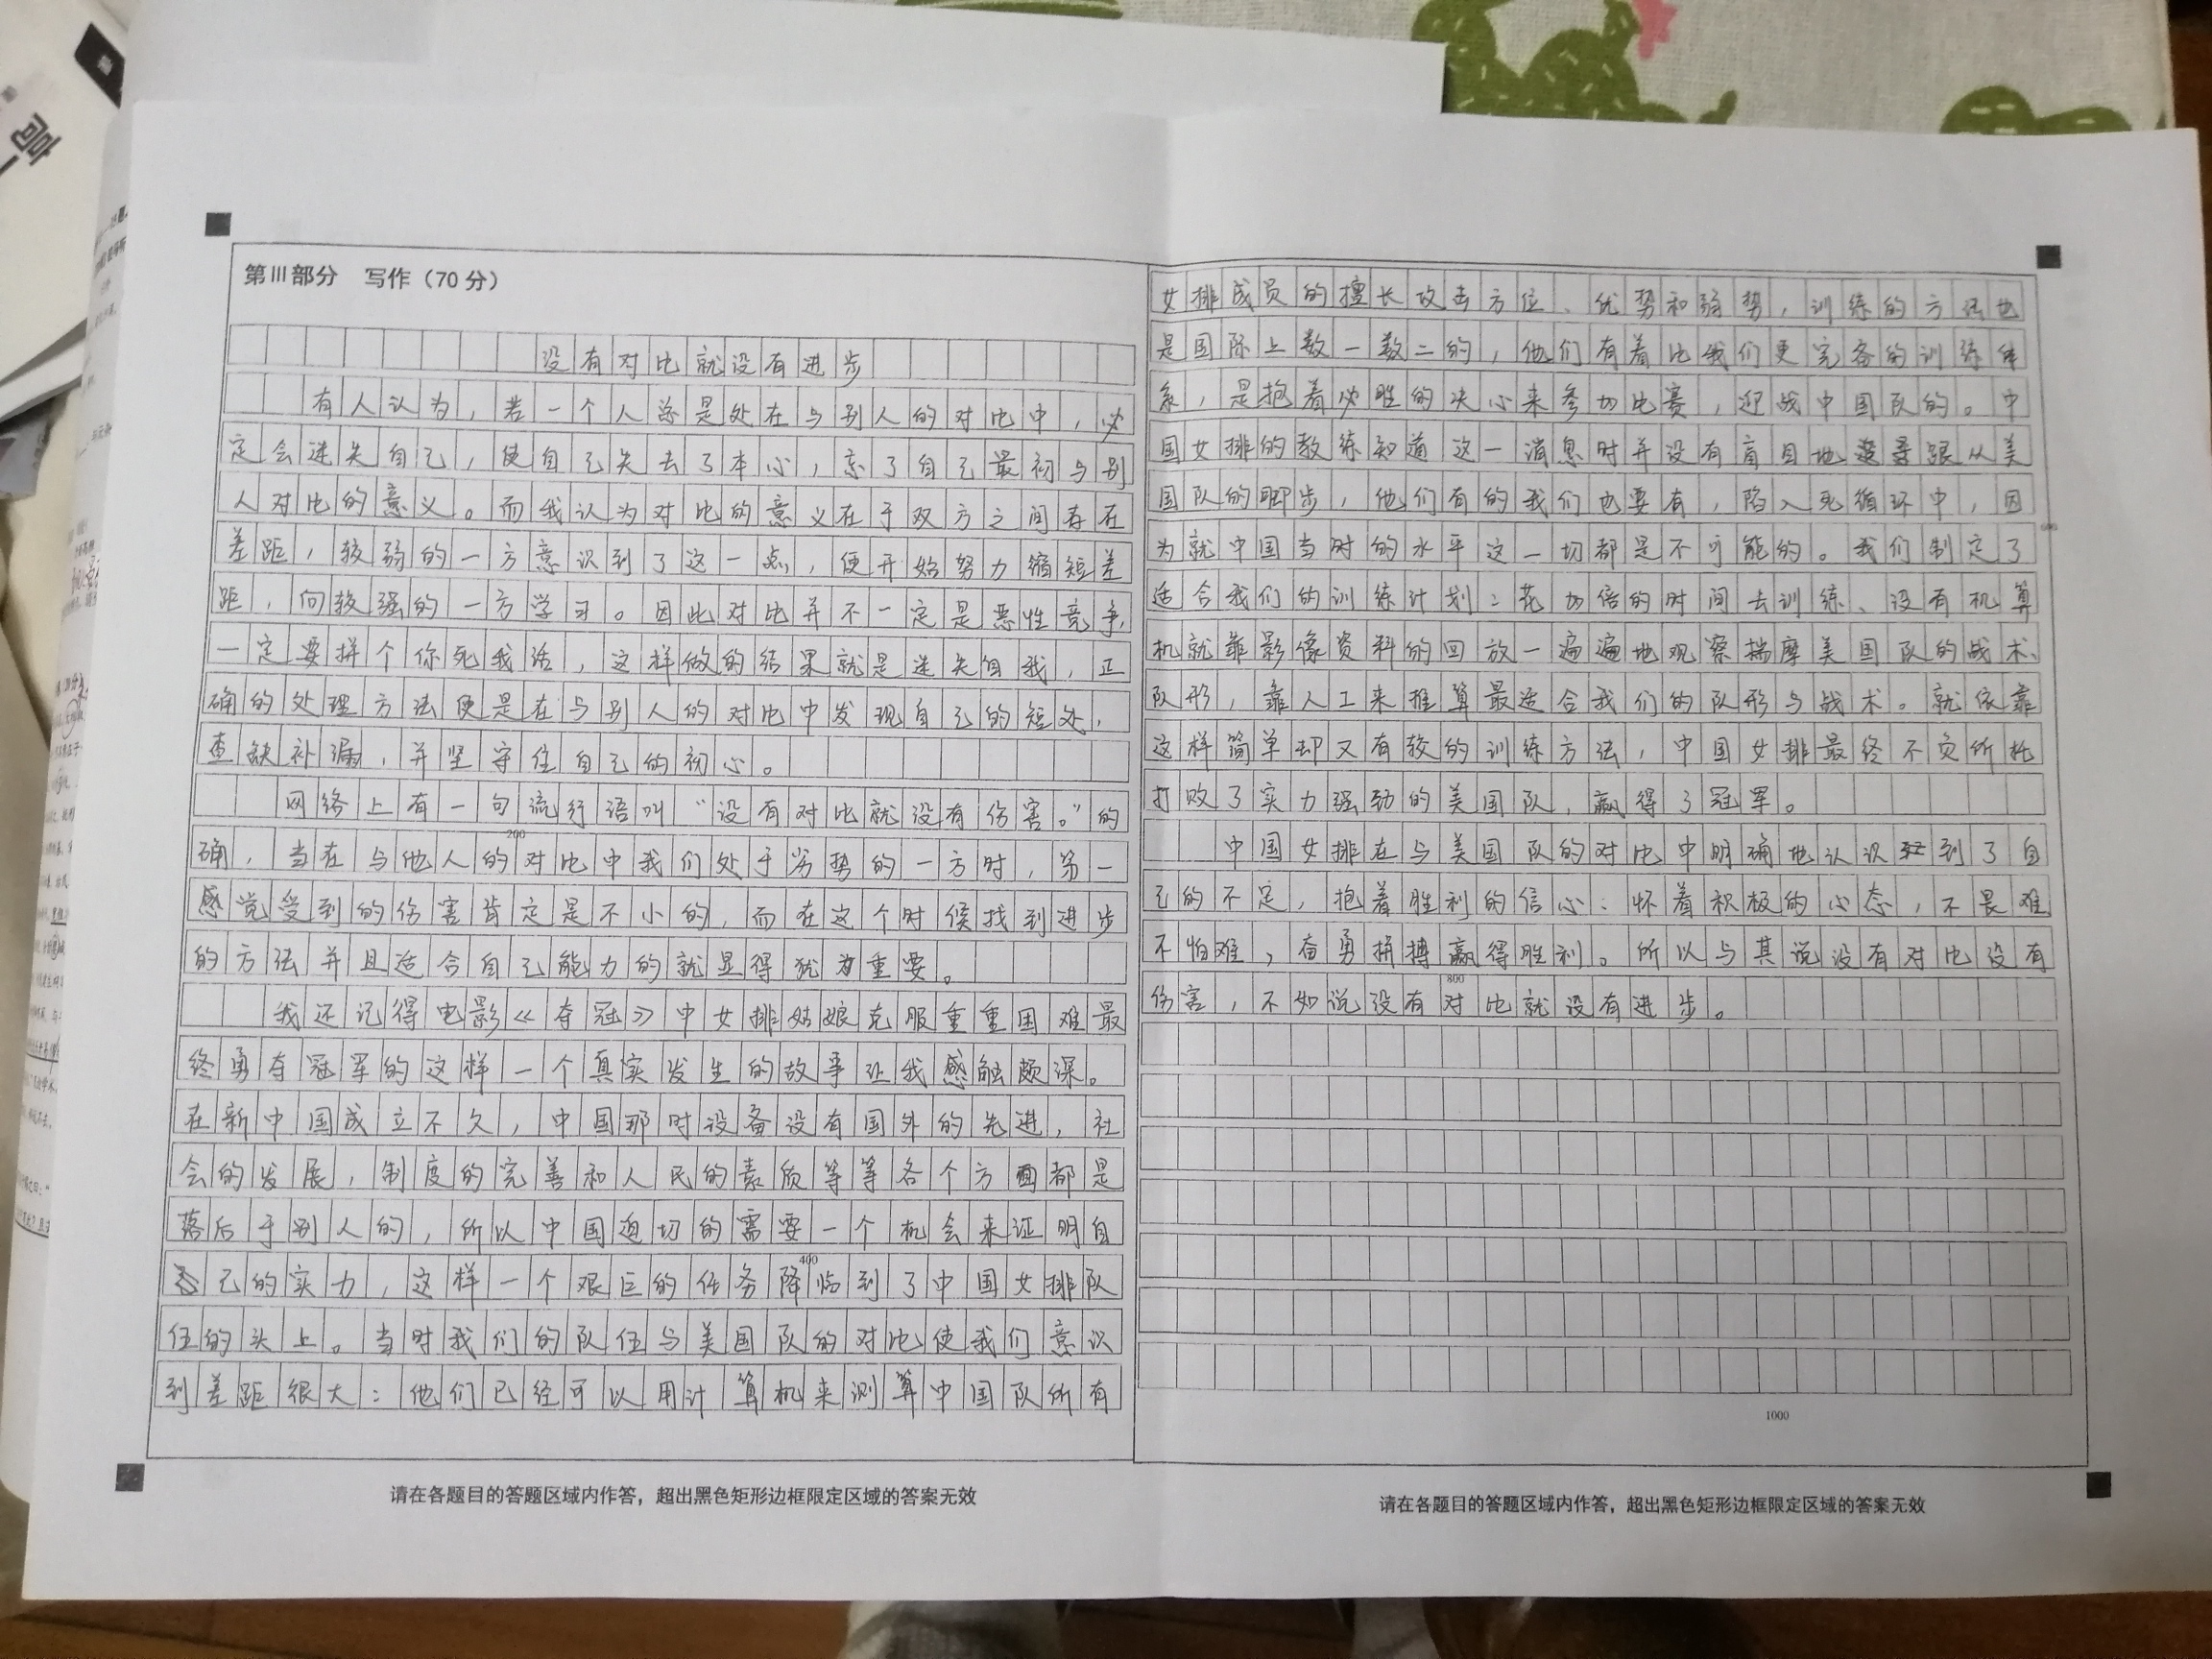 第III部分 写作（70分）
没有对比就没有进步
有人认为，若一个人总是处在与别人的对比中，必
定会迷失自己，使自己失去了本心，忘了自己最初与别
人对比的意义。而我认为对比的意义在于双方之间存在
差距，较弱的一方意识到了这一点，便开始努力缩短差
距，向较强的一方学习。因此对比并不一定是恶性竞争，
一定要拼个你死我活，这样做的结果就是迷失自我，正
确的处理方法便是在与别人的对比中发现自己的短处，
查缺补漏，并坚守住自己的初心。
网络上有一句流行语叫“没有对比就没有伤害。”的
200
确，当在与他人的对比中我们处于劣势的一方时，另一
感觉受到的伤害肯定是不小的，而在这个时候找到进步
的方法并且适合自己能力的就显得犹为重要。
我还记得电影《夺冠》中女排姑娘克服重重困难最
终勇夺冠军的这样一个真实发生的故事让我感触颇深。
在新中国成立不久，中国那时设备没有国外的先进，社
会的发展，制度的完善和人民的素质等等各个方面都是
落后于别人的，所以中国迫切的需要一个机会来证明自
400
己的实力，这样一个艰巨的任务降临到了中国女排队
伍的头上。当时我们的队伍与美国队的对比使我们意识
到差距很大：他们已经可以用计算机来测算中国队所有
请在各题目的答题区域内作答，超出黑色矩形边框限定区域的答案无效
女排成员的擅长攻击方位、优势和弱势，训练的方法也
是国际上数一数二的，他们有着比我们更完备的训练体
系，是抱着必胜的决心来参加比赛，迎战中国队的。中
国女排的教练知道这一消息时并没有盲目地跟从美
国队的脚步，他们有的我们也要有，陷入死循环中，因
600
为就中国当时的水平这一切都是不可能的。我们制定了
适合我们的训练计划：花加倍的时间去训练、没有机算
机就靠影像资料的回放一遍遍地观察揣摩美国队的战术、
队形，靠人工来推算最适合我们的队形与战术。就依靠
这样简单却又有较的训练方法，中国女排最终不负所托
打败了实力强劲的美国队，赢得了冠军。
中国女排在与美国队的对比中明确地认识到了自
己的不足，抱着胜利的信心：怀着积极的心态，不畏难
不怕难，奋勇拼搏赢得胜利。所以与其说没有对比没有
800
伤害，不如说没有对比就没有进步。
1000
请在各题目的答题区域内作答，超出黑色矩形边框限定区域的答案无效